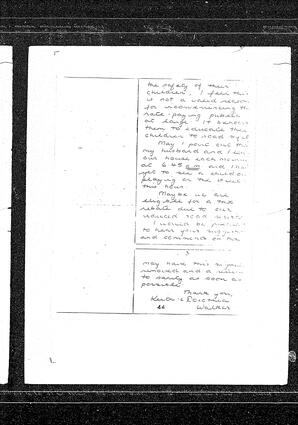 the safety of their
children. I feel this
is not a valid reason
for inconveniencing the
rate-paying public
at large. It behooves
them to educate their
children to road
May I point out
my husband and I leave
our house each morning
at 6.45 a.m. and I have
yet to see a child
playing on the street
this hour.
Maybe we are
eligible for a tax
rebate due to our
reduced road
I would be pleased
to hear your
and comments on
3
may have this
removed and a return
to sanity as soon as
possible.
Thank you,
Walker